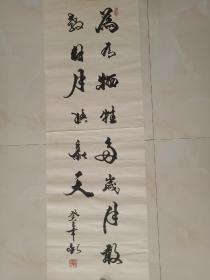 為有犧牲多歲月敢
教日月換新天
癸